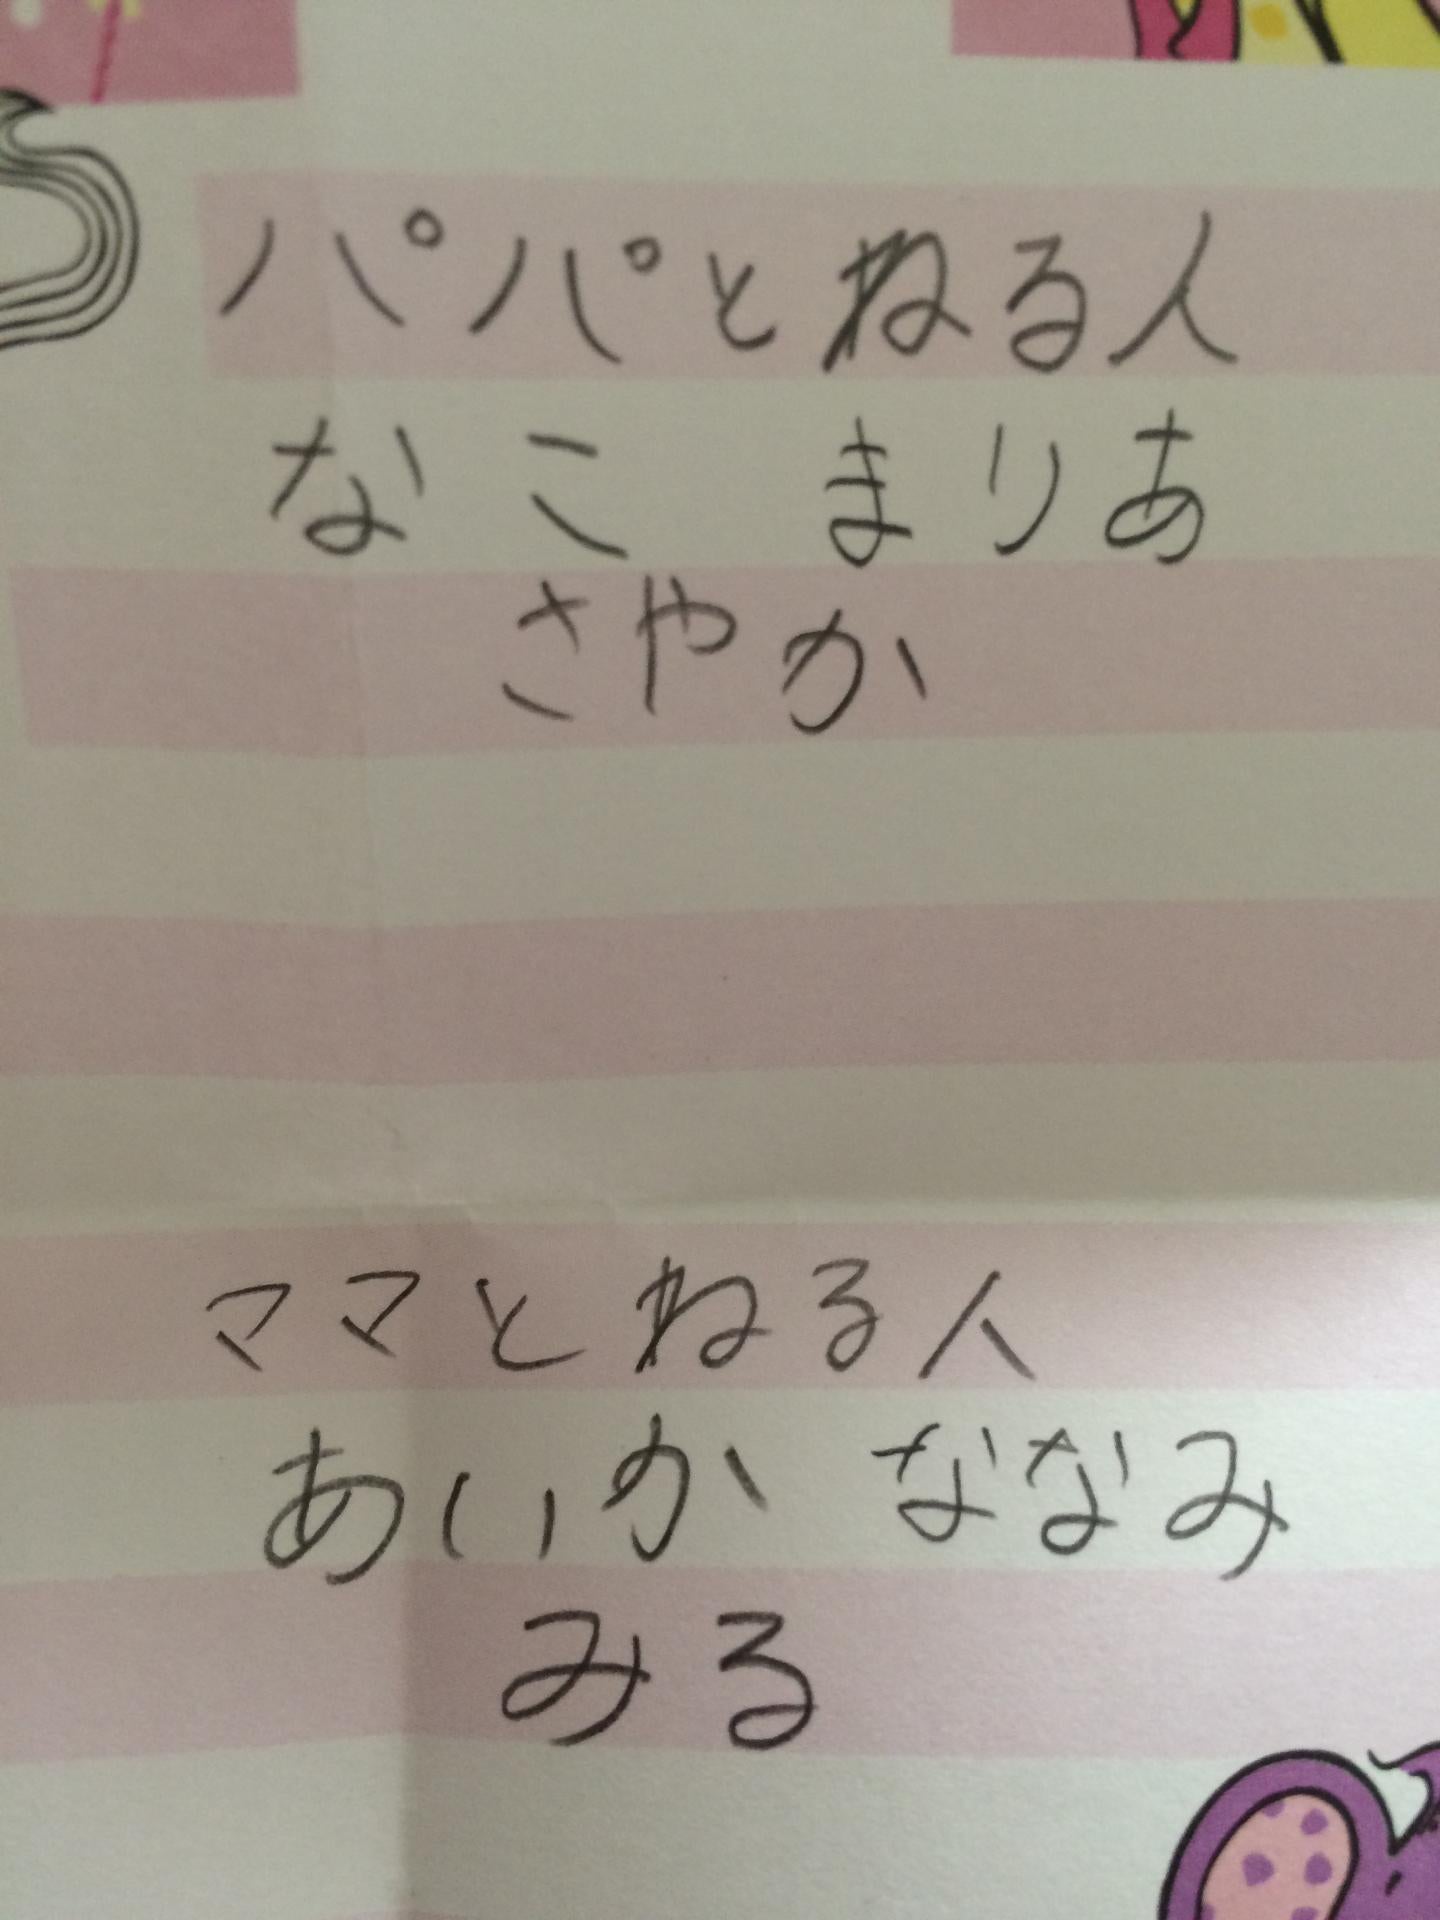 パパとねる人
なこ まりあ
さやか
ママとねる人
あいか ななみ
みる